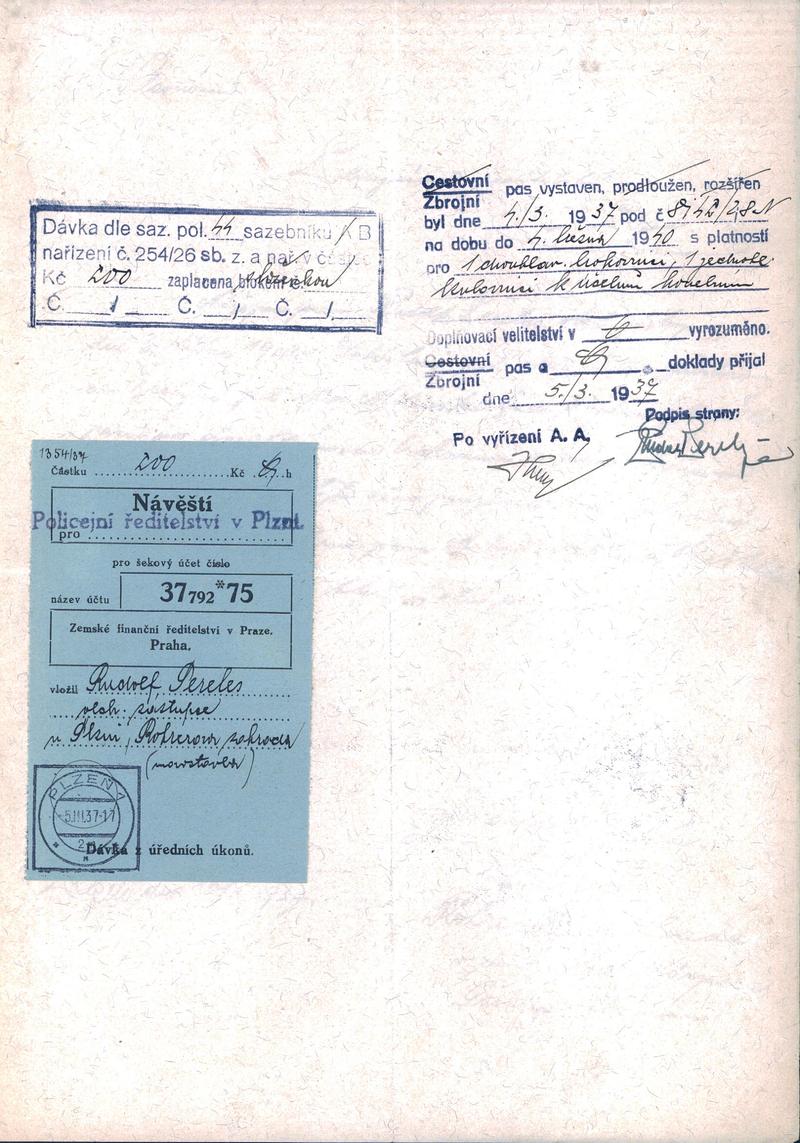 Dávka dle saz. pol. 44 sazebníku A B
nařízení č. 254/26 sb. z. a nař. v částce
Kč 200 zaplacena
Č. / Č. / Č. /
Cestovní
Zbrojní
pas vystaven, prodloužen, rozšířen
byl dne 4./3. 1937 pod č
na dobu do 4. března 1940 s platností
pro 1 dvouhlav. brokovnici, 1 jednohl.
kulovnici k účelům loveckým
Doplňovací velitelství v vyrozuměno.
Cestovní
Zbrojní
pas a doklady přijal
dne 5./3. 1937
Podpis strany:
Po vyřízení A. A.
Rudolf Pereles
1354/37
Částku 200 Kč h
Návěští
Policejní ředitelství v Plzni.
pro
pro šekový účet číslo
název účtu 37792*75
Zemské finanční ředitelství v Praze.
Praha.
vložil Rudolf Pereles
obch. zástupce
v Plzni, Rohrerova zahrada
(novostavba)
PLZEŇ 1
-5.III.37-17
Dávka z úředních úkonů.